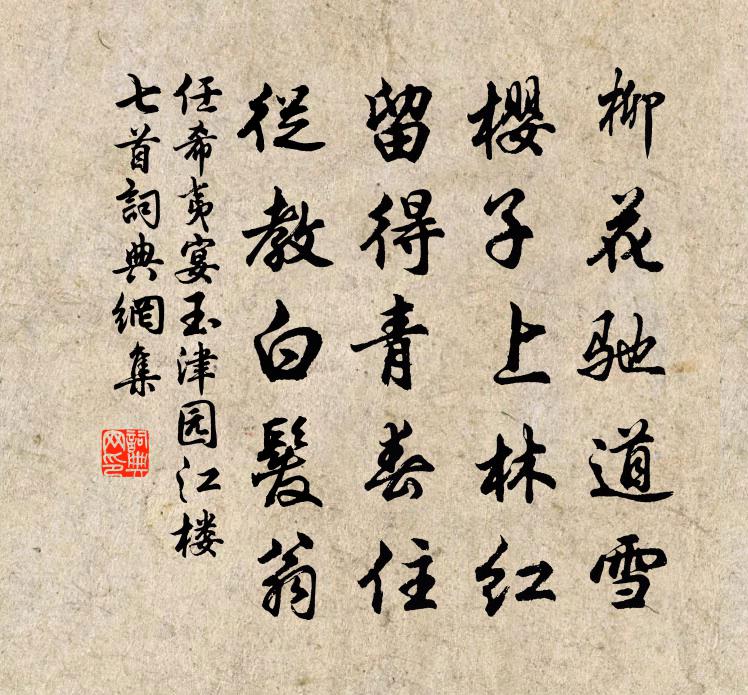 柳花驰道雪
樱子上林红
留得青春住
従教白髮翁
任希夷宴玉津园江楼
七首詞典網集
詞典
网印